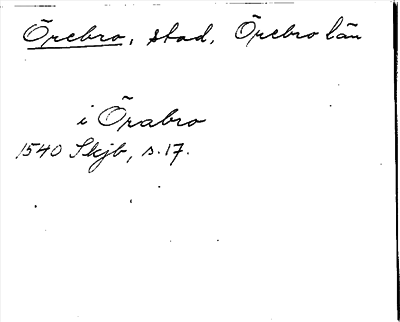 Örebro, stad, Örebro län
i Örabro
1540 Skjb, s. 17.